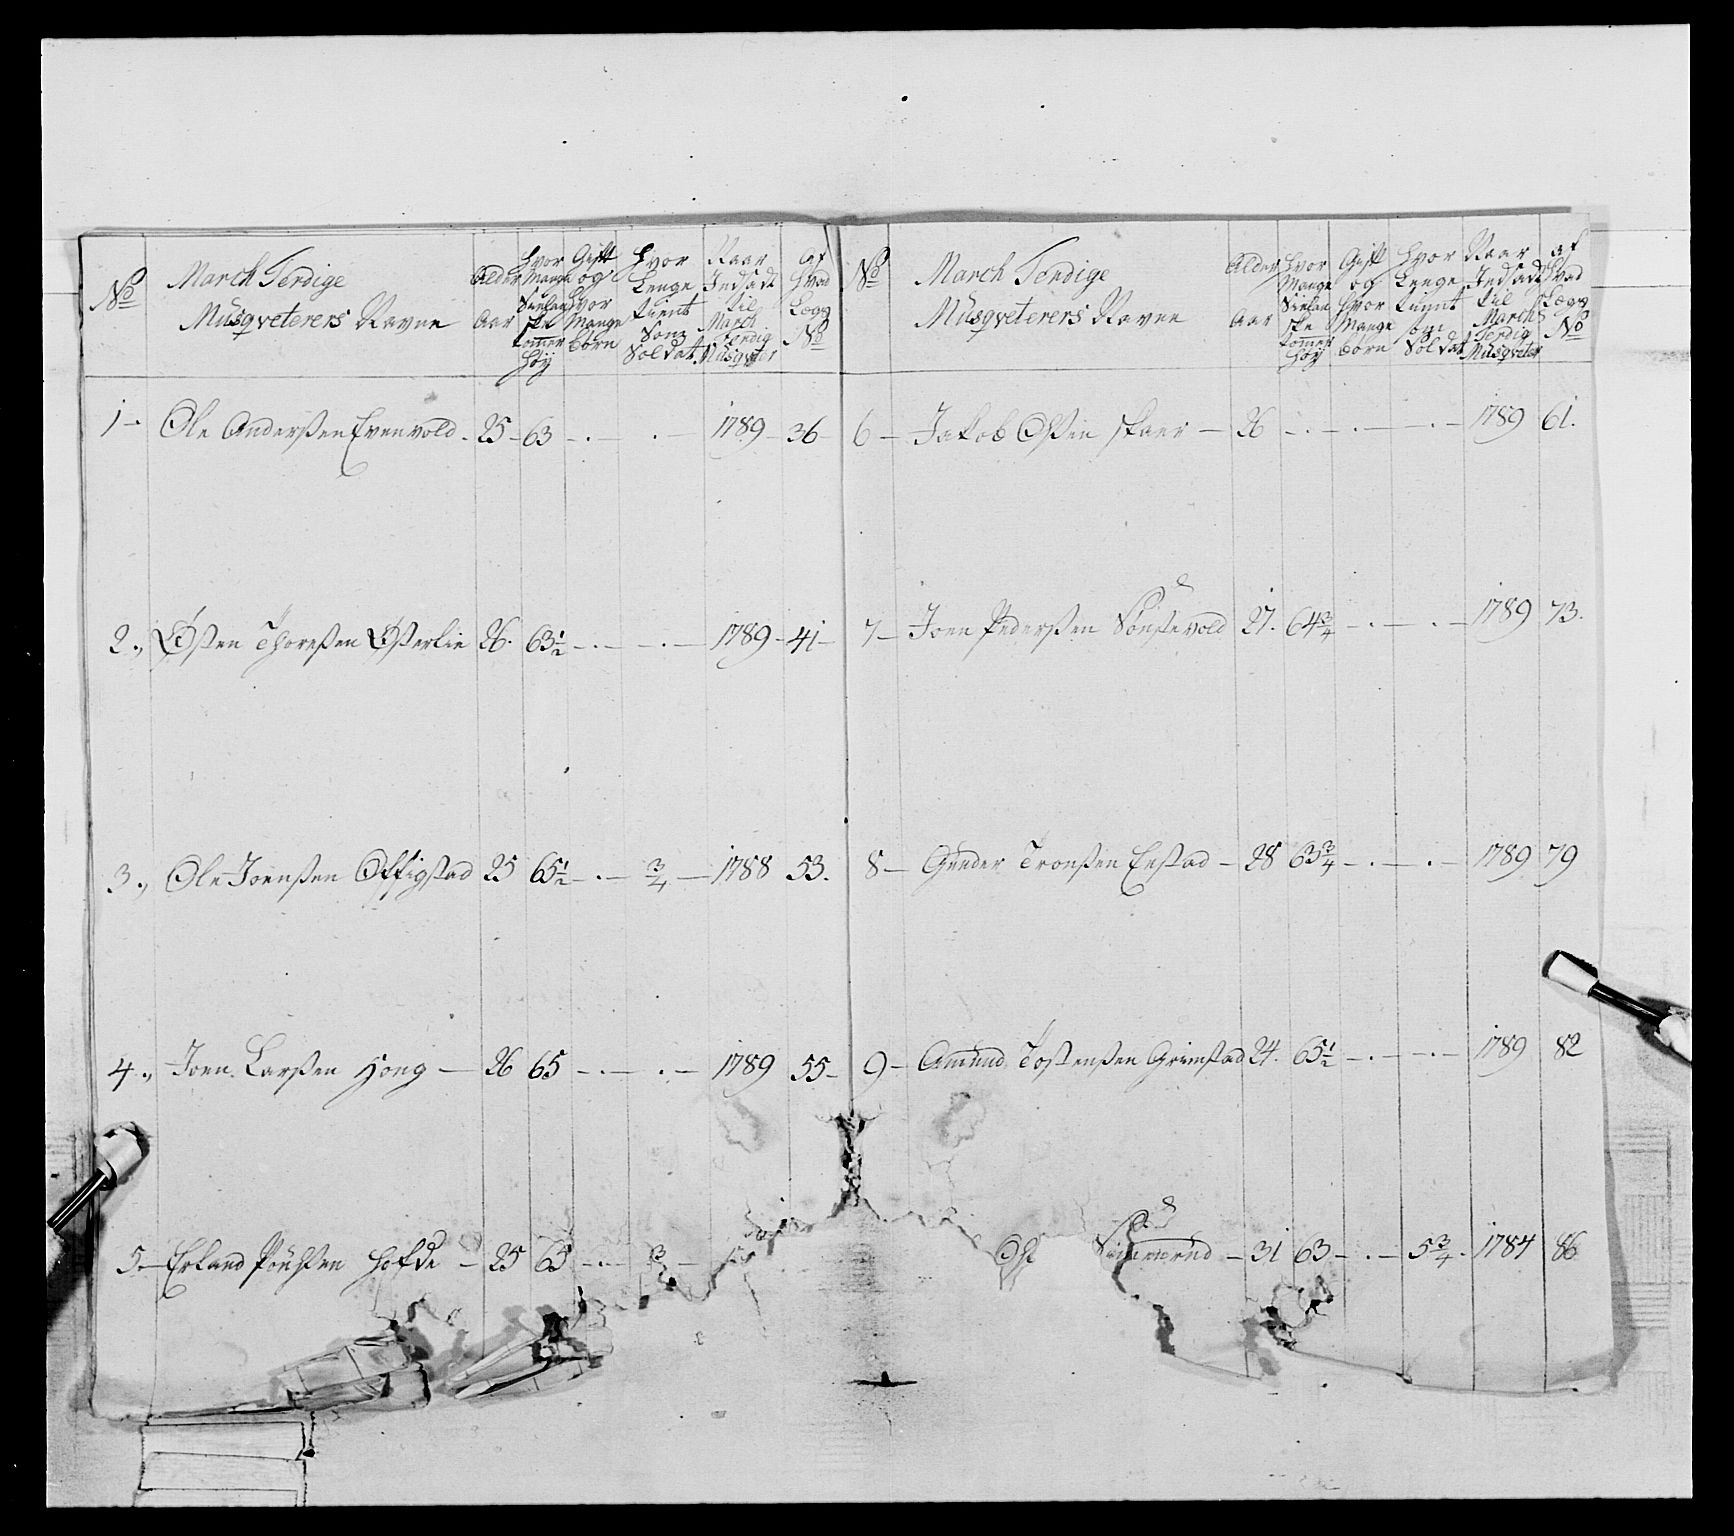 No
March Ferdige
Musqveterers Navne
Alder
Aar
Hvor
Mange
Siælan
ske
tommer
Høy
Gift
og
Hvor
Mange
børn
Hvor
Lenge
tient
Som
Soldat
Naar
Indsadt
til
March
Ferdig
Musqveter
af
Hvad
Lægg
No
1 - Ole Anderßen Evenvold - 25 - 63 - . - . - 1789 - 36 -
2., Østen Thoreßen Østerlie 26. 63 1/2 - . - . - 1789 - 41 -
3., Ole Joenßen Offigstad 25 65 1/2 - . - 3/4 - 1788 53.
4., Joen Larßen Hong - 26 65 - . - . - 1789 55 -
5 - Erland Hofde - 25 65 - . - 3
No
March Ferdige
Musqveterers Navne
Alder
Aar
Hvor
Mange
Siælan
ske
tommer
Høy
Gift
og
Hvor
Mange
børn
Hvor
Lenge
tient
som
Soldat
Naar
Indsadt
til
March
Ferdig
Musqveter
af
Hvad
Lægg
No
6 - Jakob Skaer - 26 - . - . - . - 1789 61.
7 - Joen Pederßen 27. 64 3/4 - . - . - 1789 73.
8 - Gunder Tronßen Enstad - 28 63 3/4 - . - . - 1789 79
9 - Amund Tostenßen Grimstad 24. 65 1/2 - . - . - 1789 82
- 31 63 - . - 5 3/4 . 1784 86